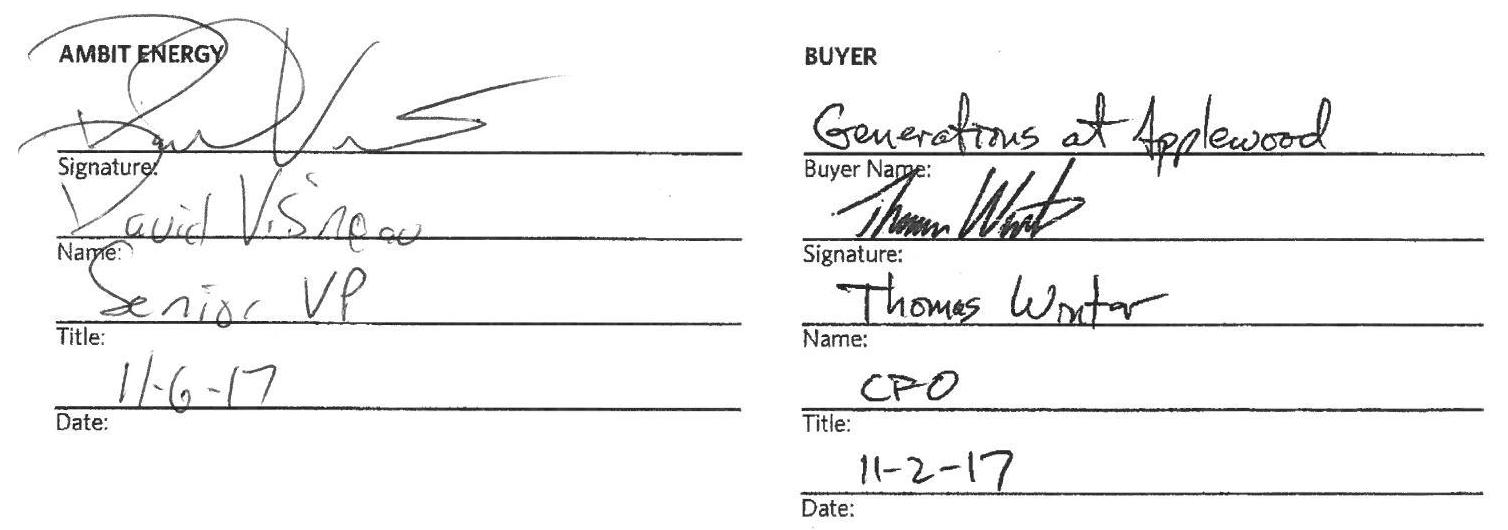 AMBIT ENERGY
Signature:
David Visneau
Name:
Senior VP
Title:
11-6-17
Date:
BUYER
Generations at Applewood
Buyer Name:
Signature:
Thomas Winter
Name:
Title:
11-2-17
Date: